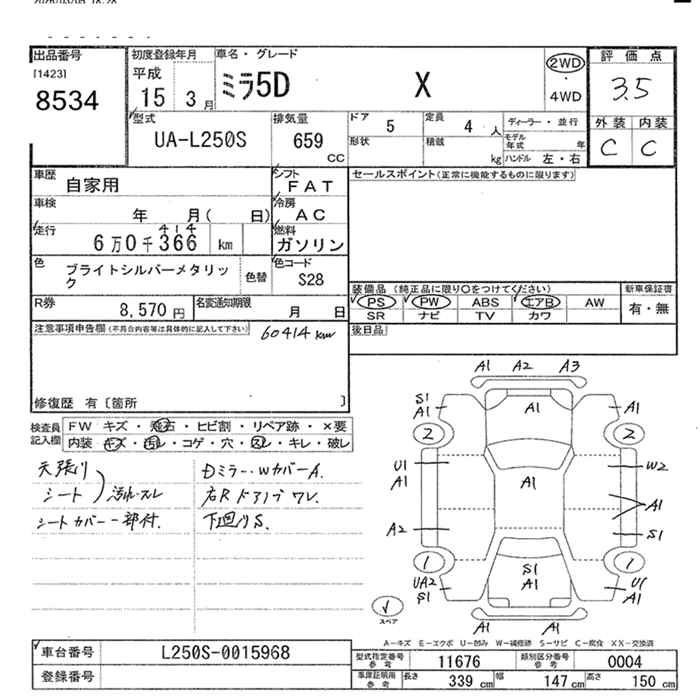 出品番号
[1423]
8534
初度登録年月
平成
15 3月
車名・グレード
ミラ5D X
2WD
・
4WD
評価点
3.5
外装 内装
C C
型式
UA-L250S
排気量
659
CC
ドア
5
定員
4 人
ディーラー・並行
形状
積載
kg
モデル年式 年
ハンドル 左・右
車歴
自家用
シフト
FAT
セールスポイント(正常に機能するものに限ります)
車検
年 月( 日)
冷房
AC
走行
414
6万0千366 km
燃料
ガソリン
色
ブライトシルバーメタリック
色替
色コード
S28
装備品 (純正品に限り○をつけてください)
新車保証書
PS PW ABS エアB AW
有・無
SR ナビ TV カワ
R券
8,570円
名変通知期限
月 日
後日品
注意事項申告欄(不具合内容等は具体的に記入して下さい)
60414km
修復歴 有〔箇所 〕
検査員記入欄
FW キズ・飛石・ヒビ割・リペア跡・×要
内装 キズ・汚れ・コゲ・穴・スレ・キレ・破レ
天張り
シート
汚れ・スレ
シートカバー一部付.
Dミラー・WカバーA.
右Rドアノブ ワレ.
下回りS.
A1 A2 A3
S1
A1
A1
A1
2
2
U1
A1
W2
A1
A1
A2
S1
1
1
S1
A1
UA2
S1
U1
A1
スペア
A1
A-キズ E-エクボ U-凹み W-補修跡 S-サビ C-腐食 XX-交換済
車台番号
L250S-0015968
登録番号
型式指定番号
参考
11676
類別区分番号
参考
0004
車庫証明用
参考
長さ
339 cm
幅
147 cm
高さ
150 cm